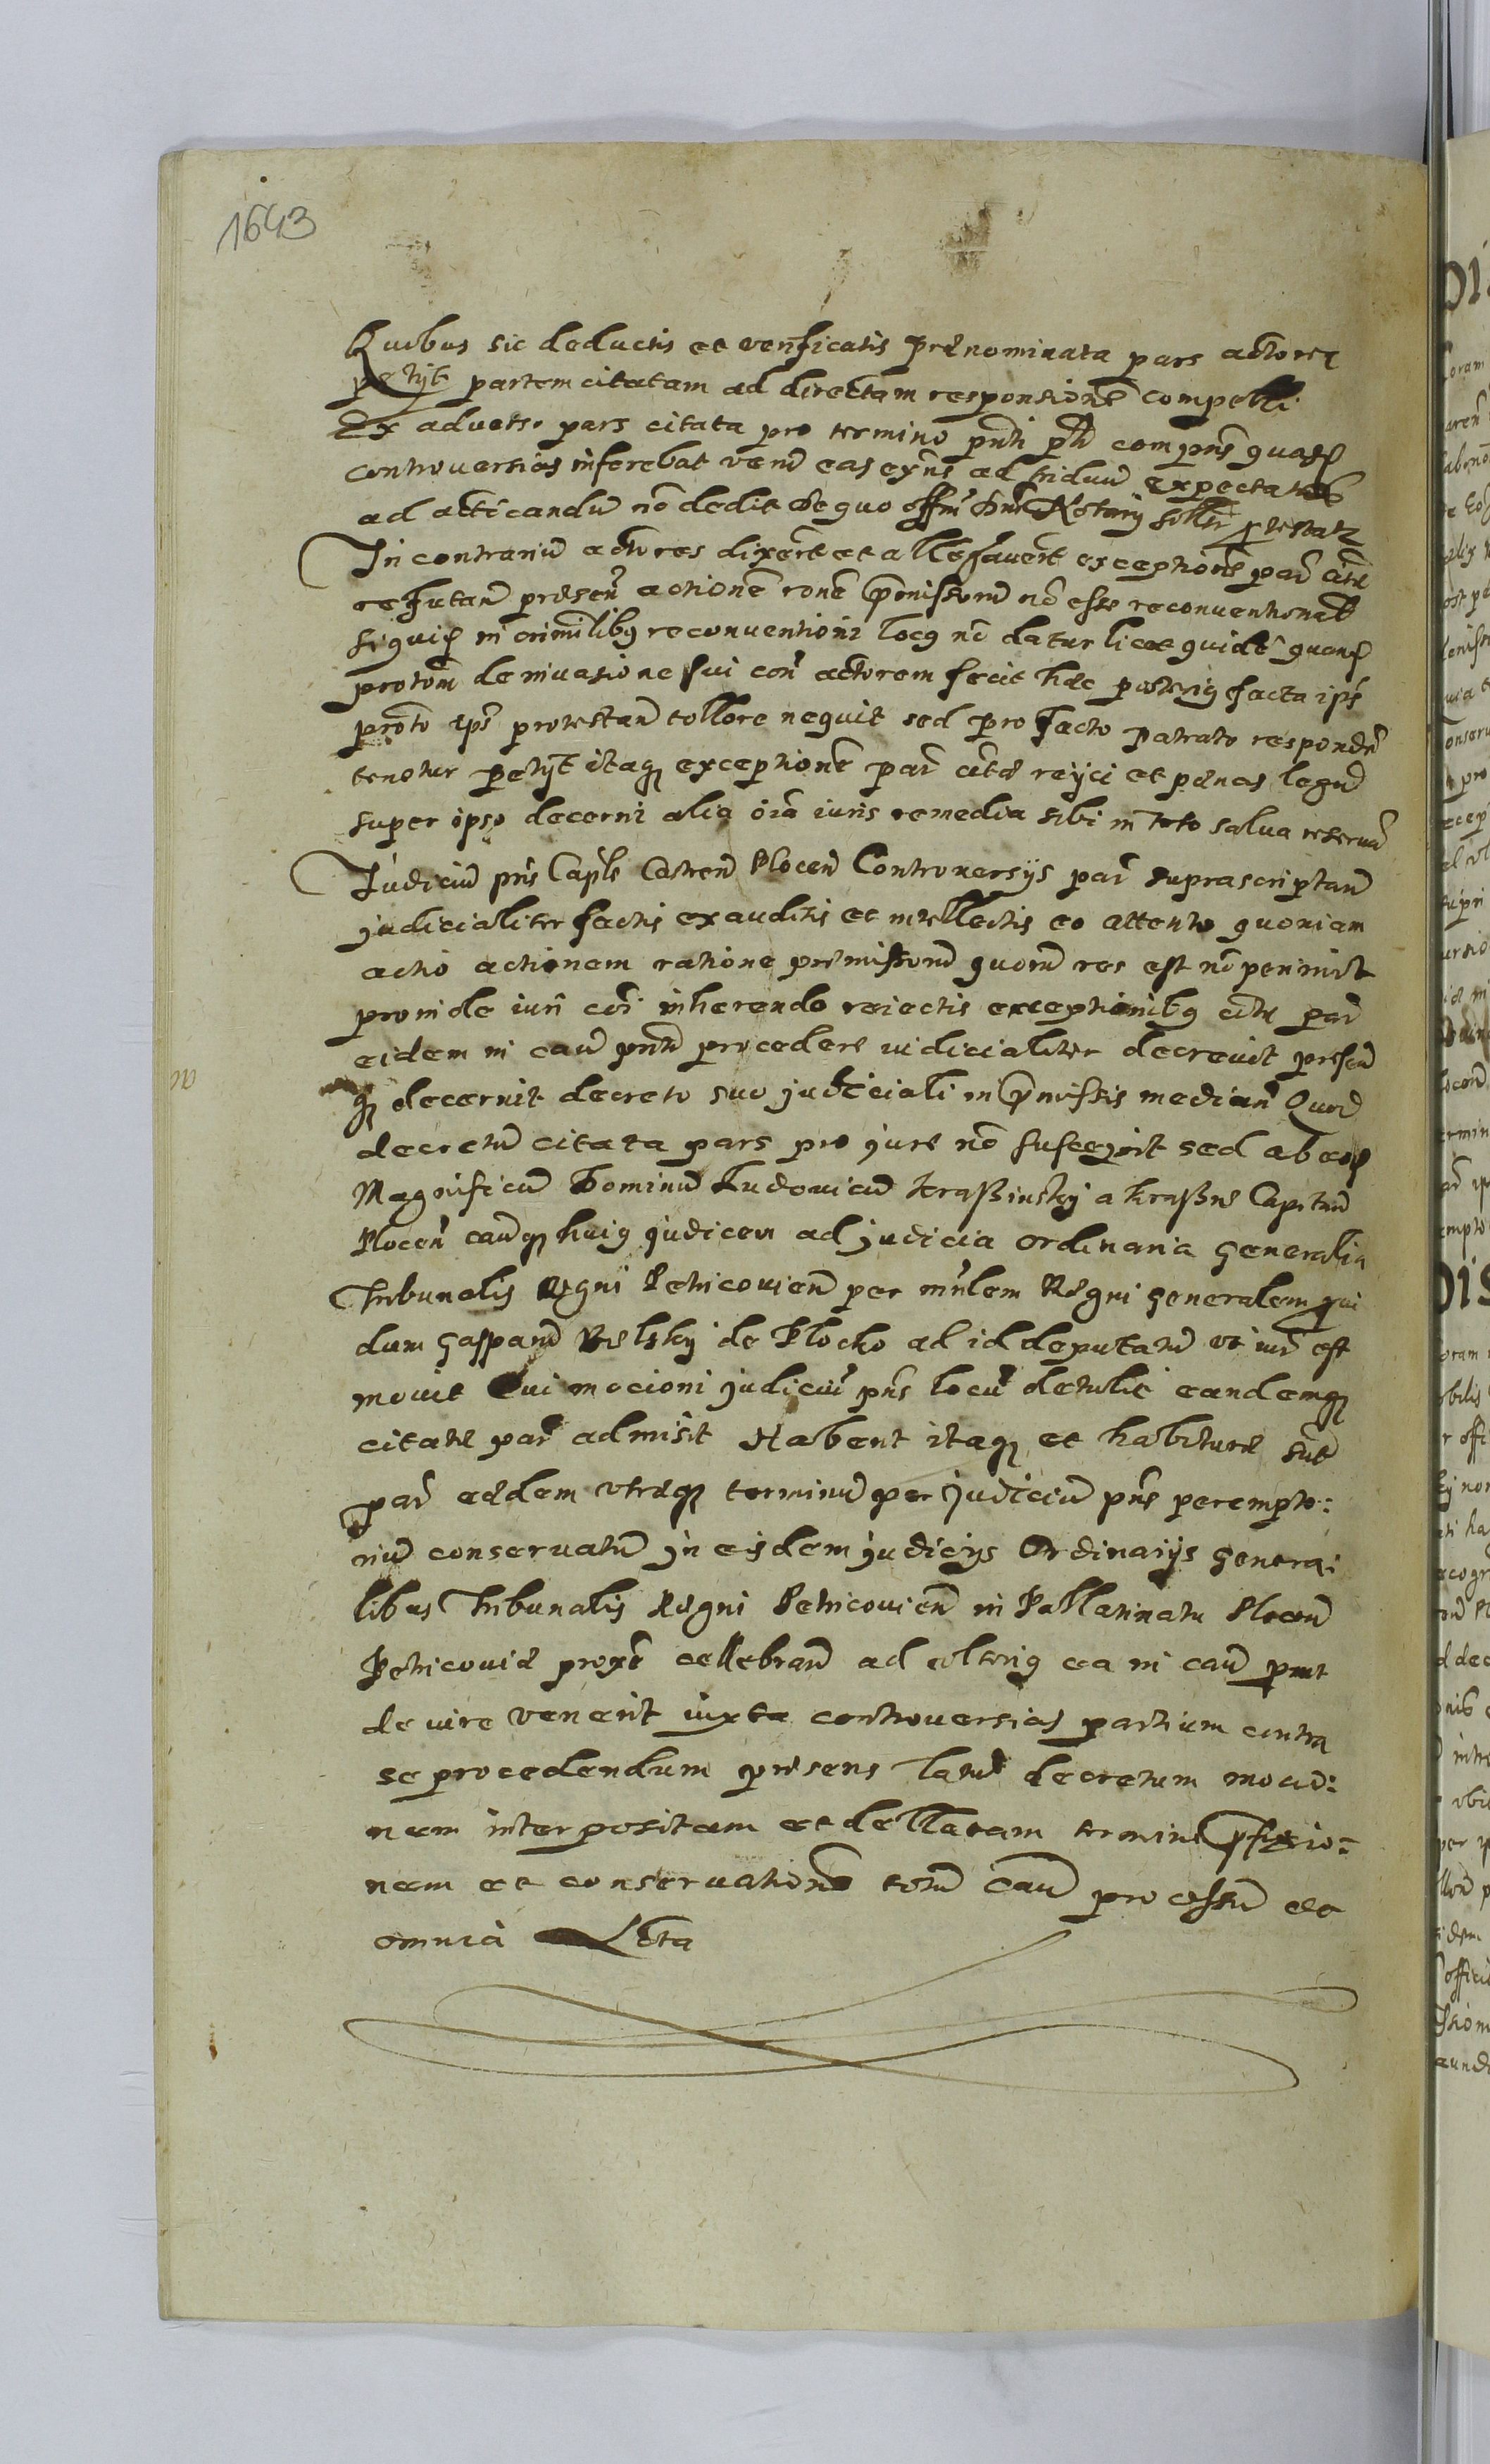 1643
Quibus sic deductis et verificatis prænominata pars actorea
petyt partem citatam ad directam responsionē compelli
Ex adverso pars citata pro termino pnti ptū comprns quasd
controversias inferebat verū eas exns ad triduū expectatas
ad acticandū nō dedit de quo offm̄ Notarij sollr protestat
In contrariū actores dixerēt et allegauerēt exceptionē par citæ
refutan præsen actionē ronē pmissorū nō esse reconuentionalē
siquid in criminalibq reconuentioni locq nō datur licet quidē quand
protom de inuasione sui con actorem fecit hæc posteriq facta ips
proto ips protestan tollere nequit sed pro facto patrato responder
tenetur petyt itaq exceptionē par citæ reijci et pænas legū
super ipso decerni alia oīa iuris remedia sibi in toto salua reseruan
Iudiciū pns Caple Castren Plocen Controuersijs par suprascriptarū
judicialiter factis exauditis et intellectis eo attento quoniam
actio actionem ratione præmissorū quorū res est nō perimit
proinde iuri coi inherendo reiectis exceptionibq citæ par
eidem in cau pnti procedere iudicialiter decreuit prescū
q decernit decreto suo judiciali in pmissis median Quod
decretū citata pars pro jure nō suscepit sed ab eod
Magnificū Dominū Ludouicū Kraßinsky a Kraßne Capitan
Plocen cauq huiq judicem ad judicia ordinaria generalia
Tribunalis Regni Petricouien per mnlem Regni generalem proui
dum Gasparū Bielsky de Plocko ad id deputatū ut iur est
mouit Cui mocioni judiciū pns locū detulit eandemq
citatæ par admisit Habent itaq et habituræ sut
par eædem vtræq terminū per judiciū pns perempto:
riū conseruatū in eisdem judicijs Ordinarijs Genera:
libus Tribunalis Regni Petricouien in Pallatinatu Plocen
Petricouiæ proxe cellebran ad vlteriq ea in cau prout
de iure venerit iuxta controuersias partium contra
se procedendum præsens latū decretum mocio:
nem interpositam et dellatam termini pfixio:
nem et conseruationē totū cau processū et
omnia Lata